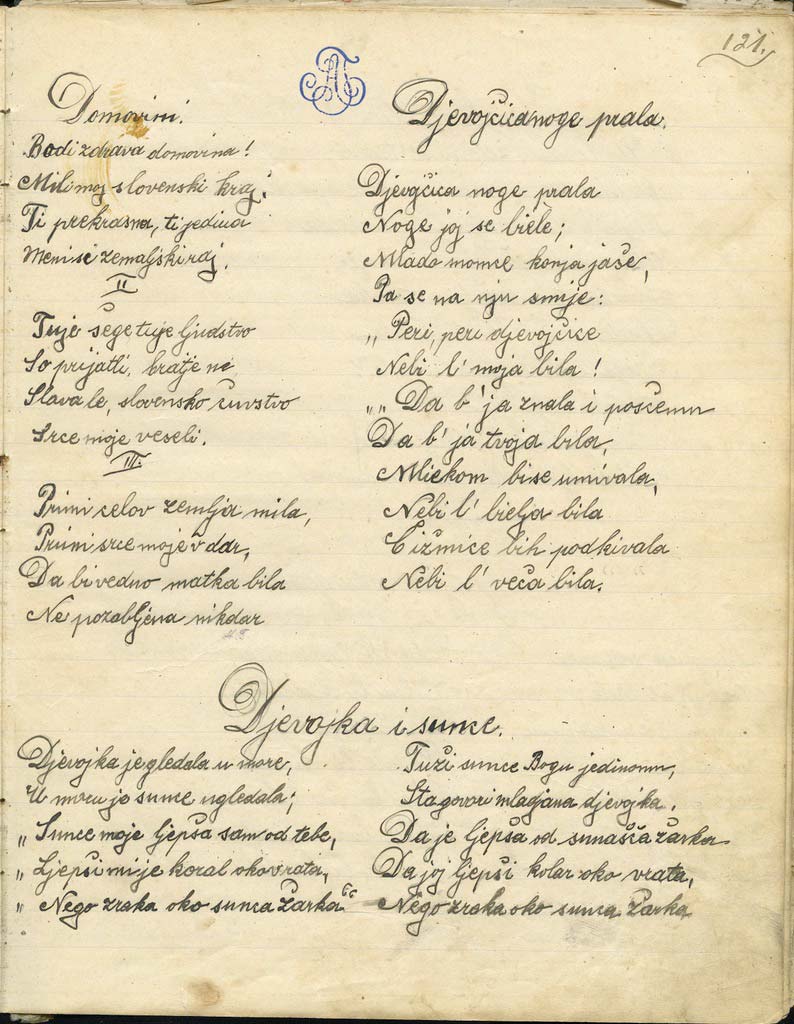 121.
Domovini.
Bodi zdrava domovina!
Mili moj slovenski kraj!
Ti prekrasna, ti jedina
Meni si zemaljski raj.
II
Tuje sege tuje ljudstvo
So prijatli, bratje ne
Slava le, slovensko čuvstvo
Srce moje veseli.
III.
Primi celov zemlja mila,
Primi srce moje v dar,
Da bi vedno matka bila
Ne pozabljena nikdar
Djevojčica noge prala.
Djevojčica noge prala
Noge joj se biele;
Mlado momce konja jaše,
Pa se na nju smije:
„Peri, peri djevojčice
Nebi l' moja bila!
„„Da b' ja znala i posčemu
Da b' ja tvoja bila,
Mliekom bi se umivala,
Nebi l' bielja bila
Čižmice bih podkivala
Nebi l' veča bila.
Djevojka i sunce.
Djevojka je gledala u more,
U moru jo sunce ugledala;
„Sunce moje ljepša sam od tebe,
„Ljepši mi je koral oko vrata,
„Nego zraka oko sunca žarka“
Tuži sunce Bogu jedinomu,
Sta govori mladjana djevojka.
Da je ljepša od sunašča žarka
Da joj ljepši kolar oko vrata,
Nego zraka oko sunca žarka